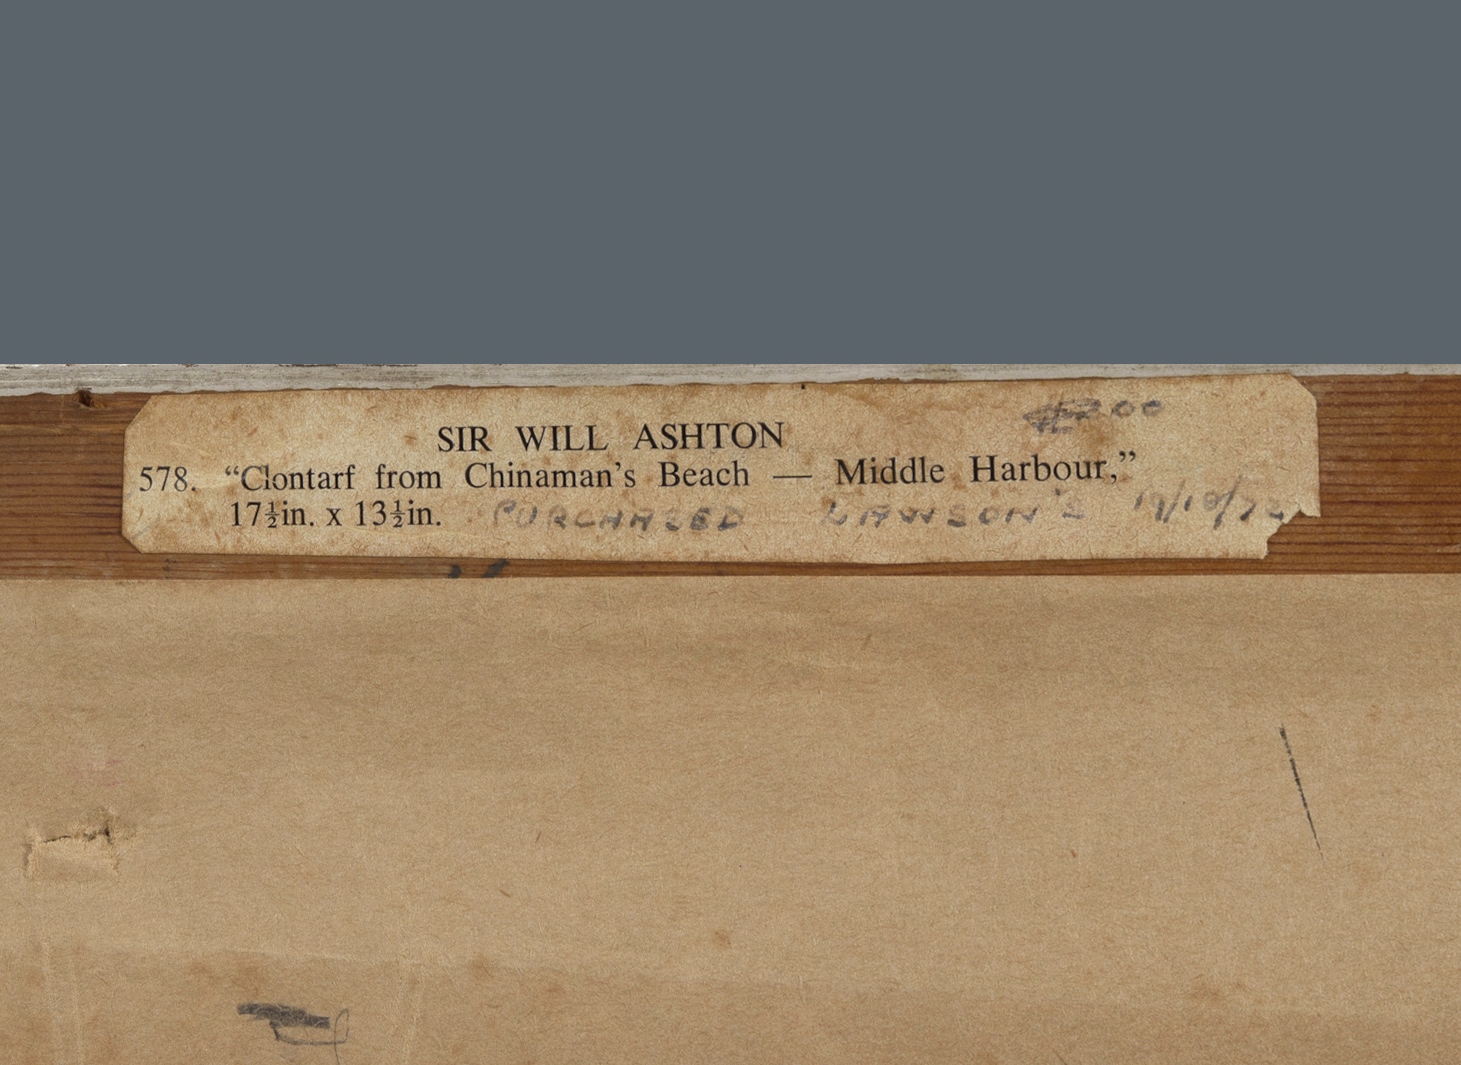 SIR WILL ASHTON
578. “Clontarf from Chinaman’s Beach — Middle Harbour,”
17½in. x 13½in. PURCHASED LAWSON'S